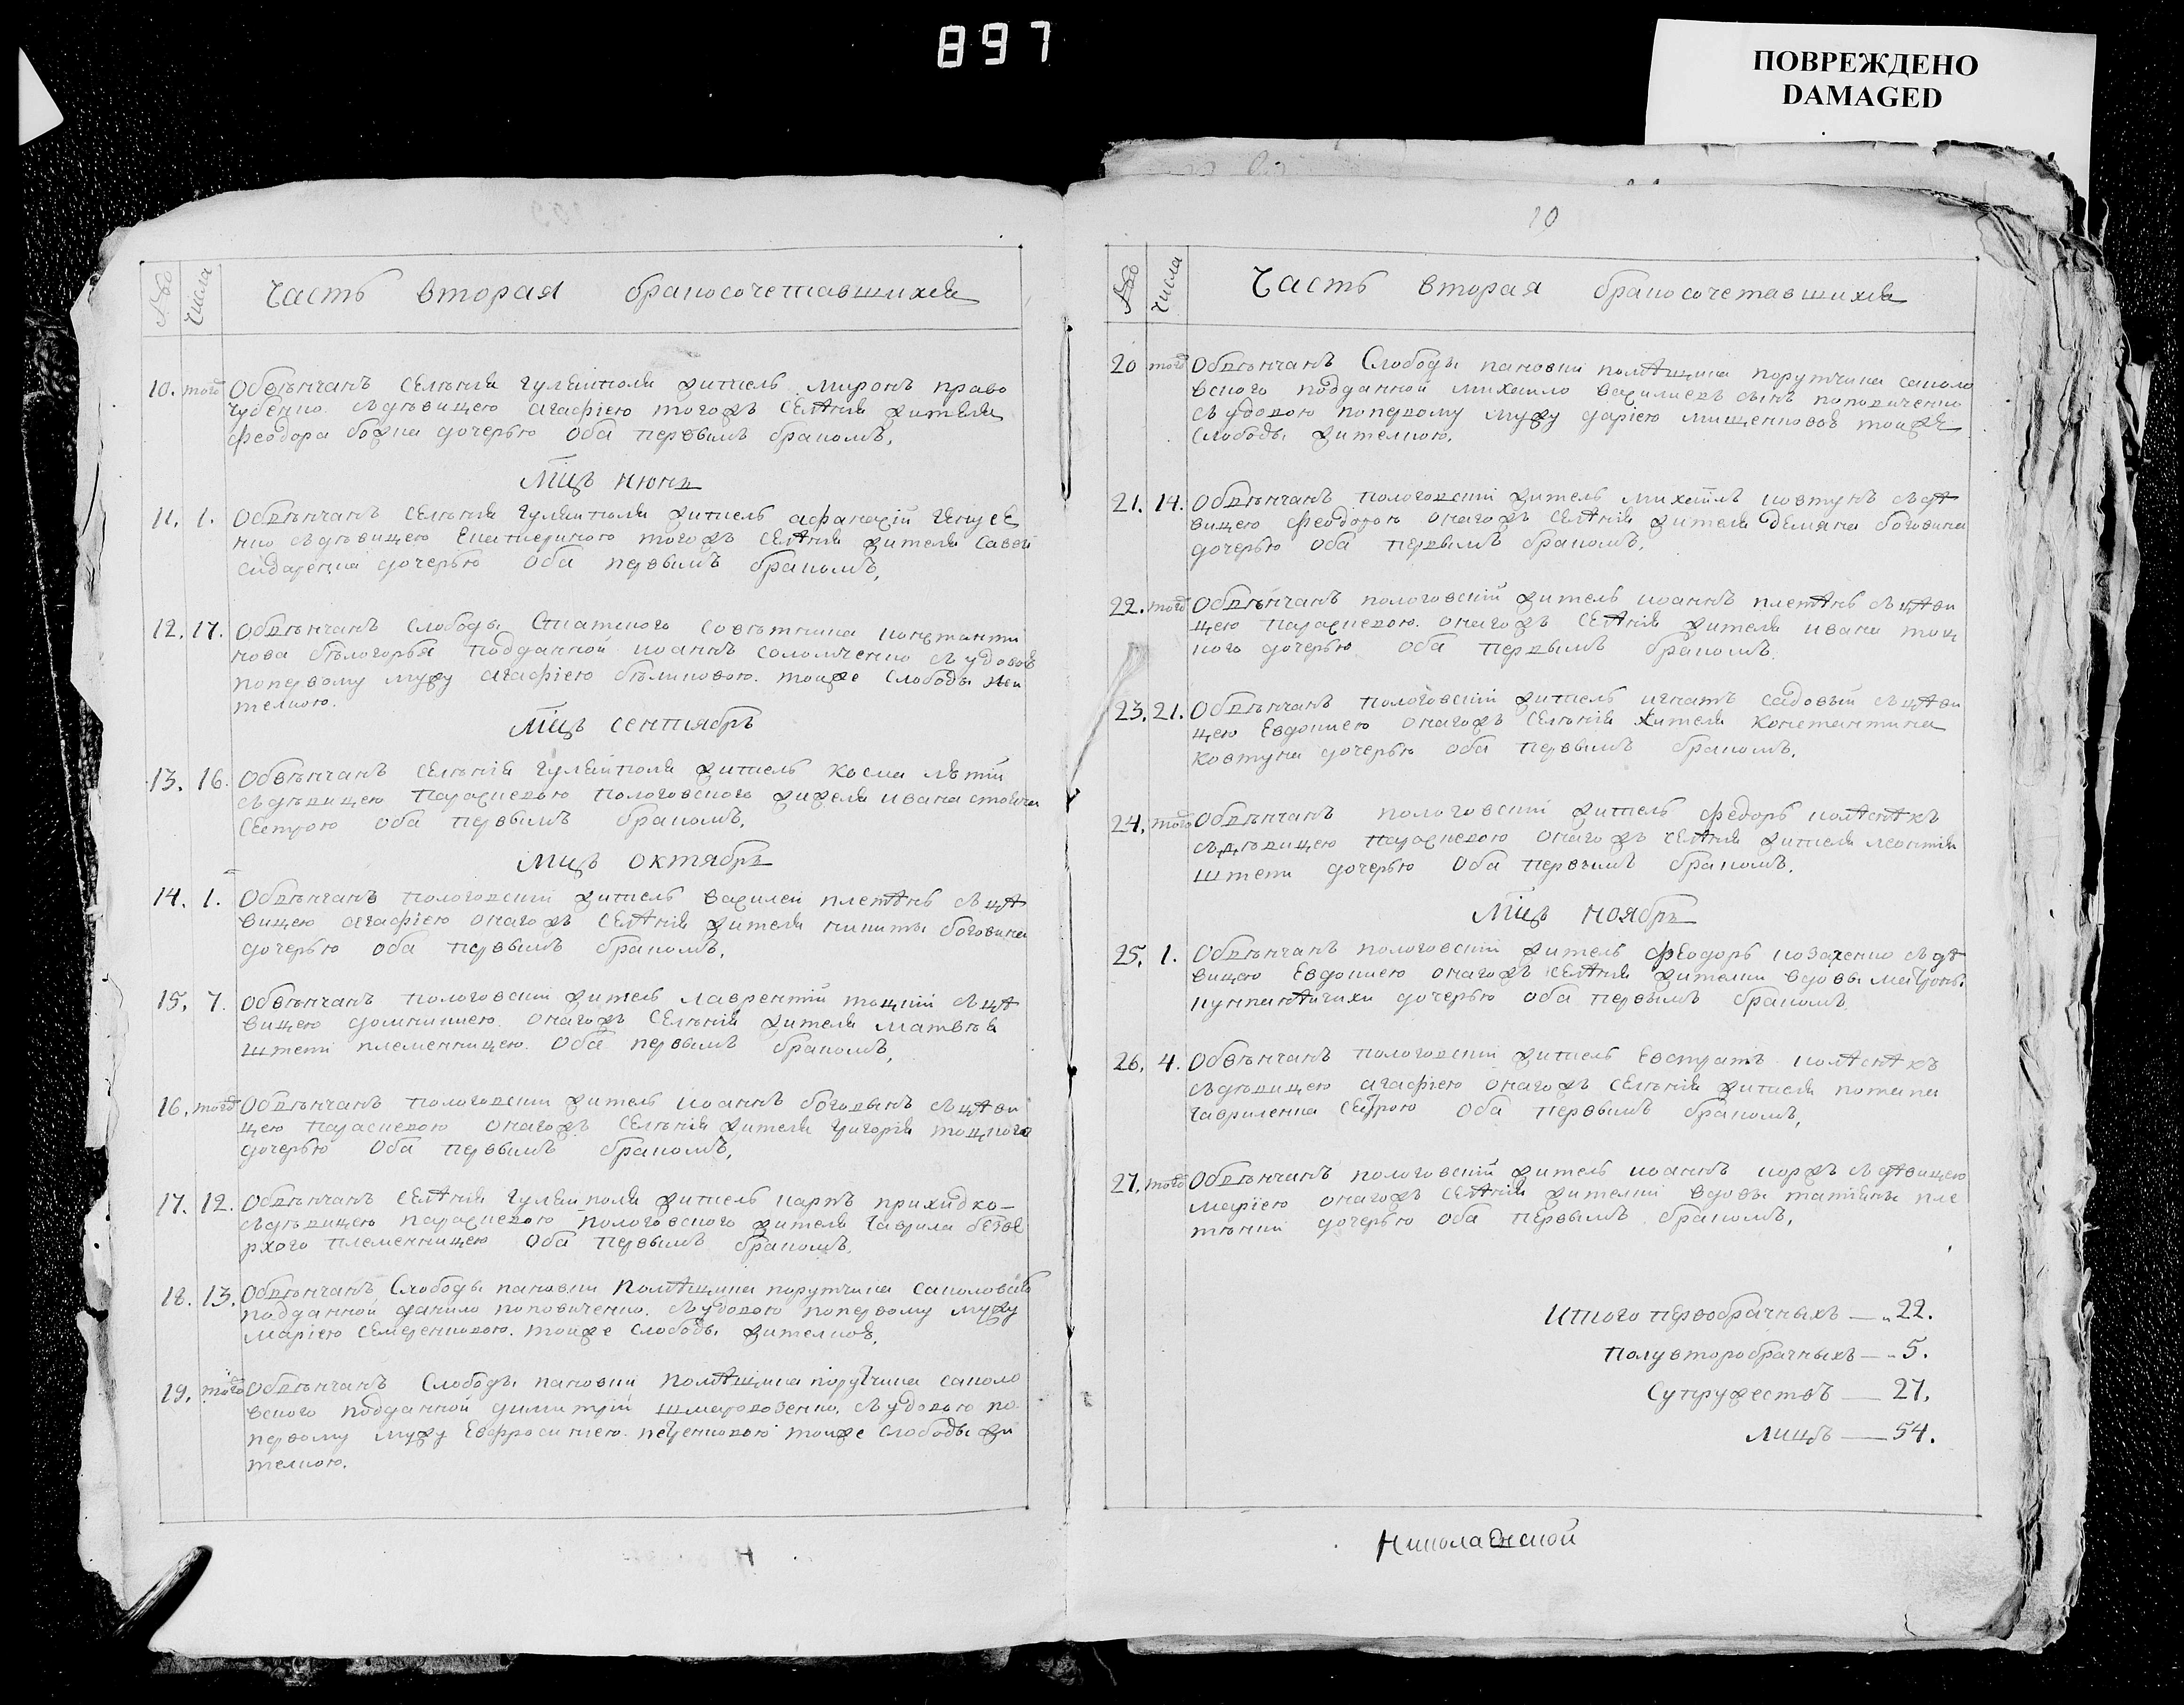 897
ПОВРЕЖДЕНО
DAMAGED
№бо Числа Часть вторая бракосочетавшихся
10. того Обвѣнчанъ селѣнія гуляйполя житель миронъ право
съдѣвицею агафіею тогожъ селѣнія жителя
феодора дочерью оба первымъ бракомъ.
Мцъ июнь
11. 1. Обвѣнчанъ селѣнія гуляйполя житель афанасій
нко съдѣвицею Екатериною тогожъ селѣнія жителя савей
сидаренка дочерью оба первымъ бракомъ,
12. 17. Обвѣнчанъ слободы Статского совѣтника константи
нова бѣлогорья подданной иоаннъ соломченко съ удовой
попервому мужу агафіею бѣликовою. тойже слободы жи
телкою.
Мцъ сентябрь
13. 16. Обвѣнчанъ селѣнія гуляйполя житель косма лѣтій
съдѣвицею параскевою пологовского жителя ивана
сестрою оба первымъ бракомъ.
Мцъ октябрь
14. 1. Обвѣнчанъ пологовский житель василей плетѣнь съ дѣ
вицею агафіею онагожъ селѣнія жителя никиты боговина
дочерью оба первымъ бракомъ.
15. 7. Обвѣнчанъ пологовский житель лаврентій тоцкій съ дѣ
вицею домникиею онагожъ селѣнія жителя матвѣя
штепи племенницею оба первымъ бракомъ,
16. того Обвѣнчанъ пологовский житель иоаннъ боговынъ съ дѣви
цею параскевою онагожъ селѣнія жителя григорія тоцкого
дочерью оба первымъ бракомъ,
17. 12. Обвѣнчанъ селѣнія гуляйполя житель карпъ прихидко–
съдѣвицею параскевою пологовского жителя гаврила безве
рхого племенницею оба первымъ бракомъ.
18. 13. Обвѣнчанъ Слободы пановки помѣщика порутчика саколовского
подданной данило поповиченко. съ удовою попервому мужу
маріею семеренковою. тойже слободы жителкой.
19. того Обвѣнчанъ Слободы пановки помѣщика порутчика саколо
вского подданной димитрій съ удовою по
первому мужу Евфросиниею тойже слободы жи
телкою.
19
№бо Числа Часть вторая бракосочетавшихся
20 того Обвѣнчанъ Слободы пановки помѣщика порутчика саколо
вского подданной михайло василиевъ сынъ поповиченко
съ удовою попервому мужу даріею мищенковой тойже
слободы жителкою.
21. 14. Обвѣнчанъ пологовский житель михаилъ ковтунъ съ дѣ
вицею феодорою онагожъ селѣнія жителя демяна боговина
дочерью оба первымъ бракомъ.
22. того Обвѣнчанъ пологовский житель иоаннъ плетѣнь съ дѣви
цею параскевою. онагожъ селѣнія жителя ивана тоц
кого дочерью оба первымъ бракомъ.
23. 21. Обвѣнчанъ пологовский житель игнатъ садовый съ дѣви
цею Евдокиею онагожъ селѣнія жителя Константина
Ковтуна дочерью оба первымъ бракомъ.
24. того Обвѣнчанъ пологовский житель федоръ колѣснѣкъ
съдѣвицею параскевою онагожъ селѣнія жителя леонтія
штепи дочерью оба первымъ бракомъ.
Мцъ ноябрь
25. 1. Обвѣнчанъ пологовский житель феодоръ козаченко съ дѣ
вицею Евдокиею онагожъ селѣнія жителки вдовы матроны
дочерью оба первымъ бракомъ
26. 4. Обвѣнчанъ пологовский житель Евстратъ колѣснѣкъ
съдѣвицею агафіею онагожъ селѣнія жителя потапа
гавриленка сестрою оба первымъ бракомъ,
27. того Обвѣнчанъ пологовский житель иоаннъ коржъ съ дѣвицею
маріею онагожъ селѣнія жителки вдовы татияны пле
тѣнки дочерью оба первымъ бракомъ,
Итого первобрачныхъ — 22.
Полувторобрачныхъ — 5.
Супружествъ — 27.
лицъ — 54.
Николаевской